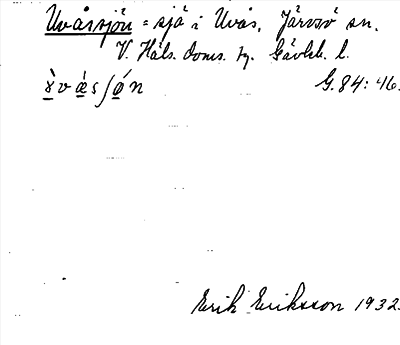 Uvåssjön = sjö i Uvås, Järvsö sn.
V. Häls. doms. tg. Gävleb. l.
ɤ̀vǽsʃǿn G. 84:46.
Erik Eriksson 1932.